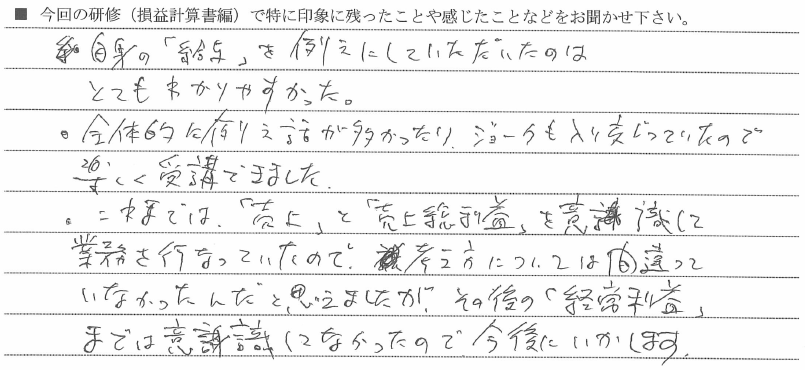 ■ 今回の研修（損益計算書編）で特に印象に残ったことや感じたことなどをお聞かせ下さい。
自身の「給与」を例えにしていただいたのは
とてもわかりやすかった。
・全体的に例え話が多かったり、ジョークも入り交じっていたので
楽しく受講できました。
・これまでは、「売上」と「売上総利益」を意識して
業務を行なっていたので、考え方については間違って
いなかったんだと思えましたが、その後の「経常利益」
までは意識してなかったので今後にいかします。